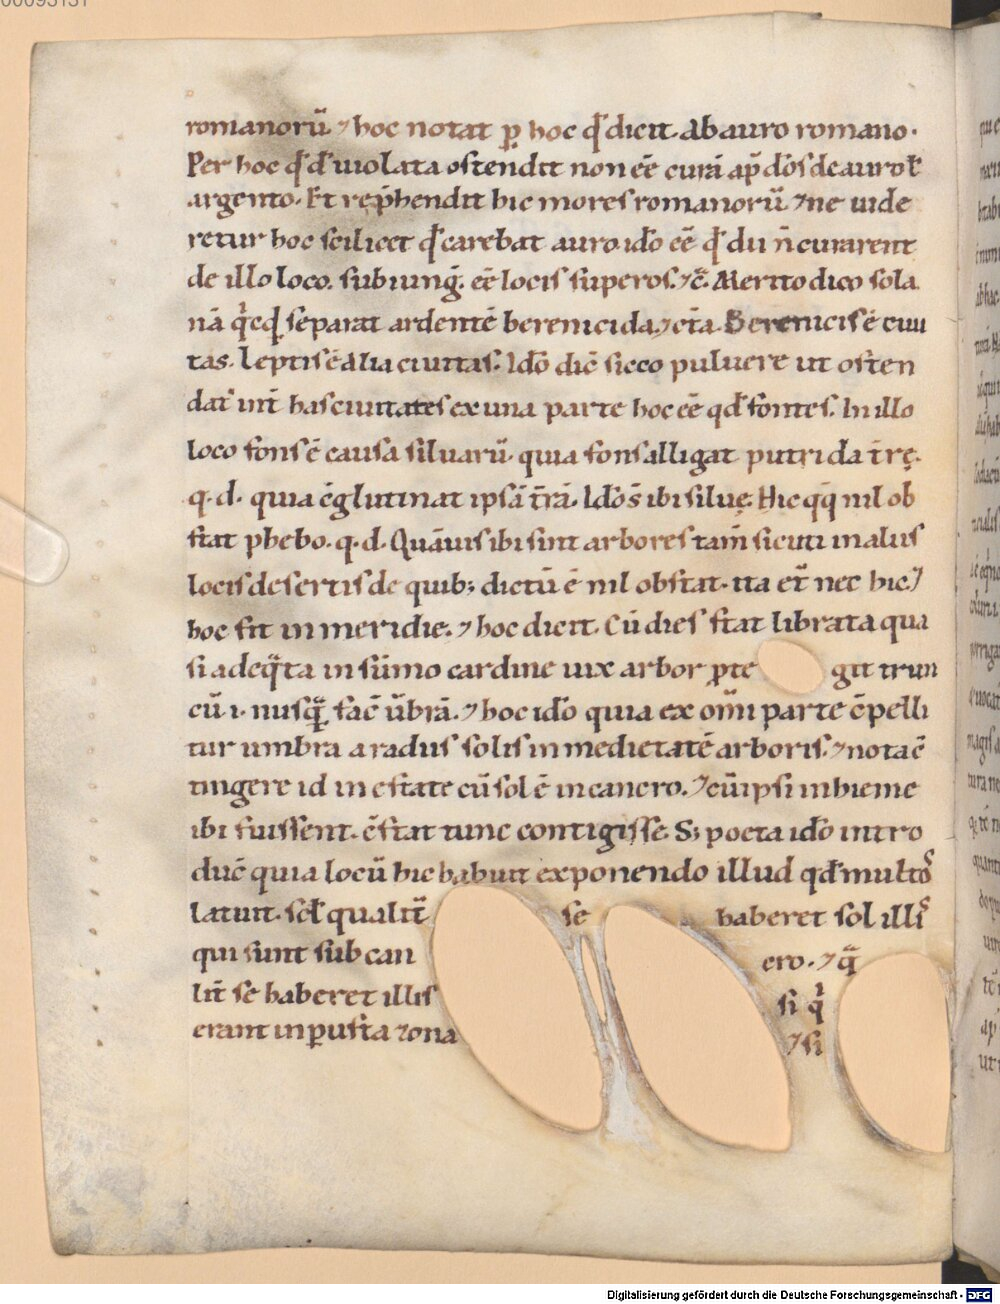 romanorū ⁊ hoc notat ꝑ hoc qđ dicit. Ab auro romano.
Per hoc qđ đ uiolata ostendit non ēē curā ap̄ dōs de auro ł
argento. Et rep̄hendit hic mores romanorū ⁊ ne uide
retur hoc scilicet qđ carebat auro idō ēē qđ dii n̄ curarent
de illo loco. subiung̃. ēē locis superos. ⁊c̃. Merito dico sola
nā q̇cqđ separat ardentē berenicida. ⁊ cēta. Berenicis ē ciui
tas. Leptis ē alia ciuitas. Idō dic̄ sicco puluere ut osten
dat int̄ has ciuitates ex una parte hoc ēē qđ fontes. In illo
loco fons ē causa siluarū. quia fons alligat putrida t̄rę.
q. d. quia c̄glutinat ipsā t̄rā. Idō s̄ ibi siluę. Hic qq̄ nil ob
stat phebo. q. d. Quāuis ibi sint arbores tam̄ sicuti in aliis
locis desertis de quib; dictū ē nil obstat. ita et̄ nec hic. ⁊
hoc fit in meridie. ⁊ hoc dicit. Cū dies stat librata qua
si adeq̄ta in sūmo cardine uix arbor ꝓte git trun
cū .i. nusq̄ fac̄ ūbrā. ⁊ hoc idō quia ex om̄i parte c̄pelli
tur umbra a radiis solis in medietatē arboris. ⁊ nota c̄
tingere id in estate cū sol ē in cancro. ⁊ cū ipsi in hieme
ibi fuissent. c̄stat tunc contigisse. S; poeta idō intro
duc̄ quia locū hic habuit exponendo illud qđ multos
latuit. scł qualit̄ se haberet sol illis
qui sunt sub can ero. ⁊ q̄
lit̄ se haberet illis si q̇
erant in ꝑusta zona ⁊ si
Digitalisierung gefördert durch die Deutsche Forschungsgemeinschaft - DFG